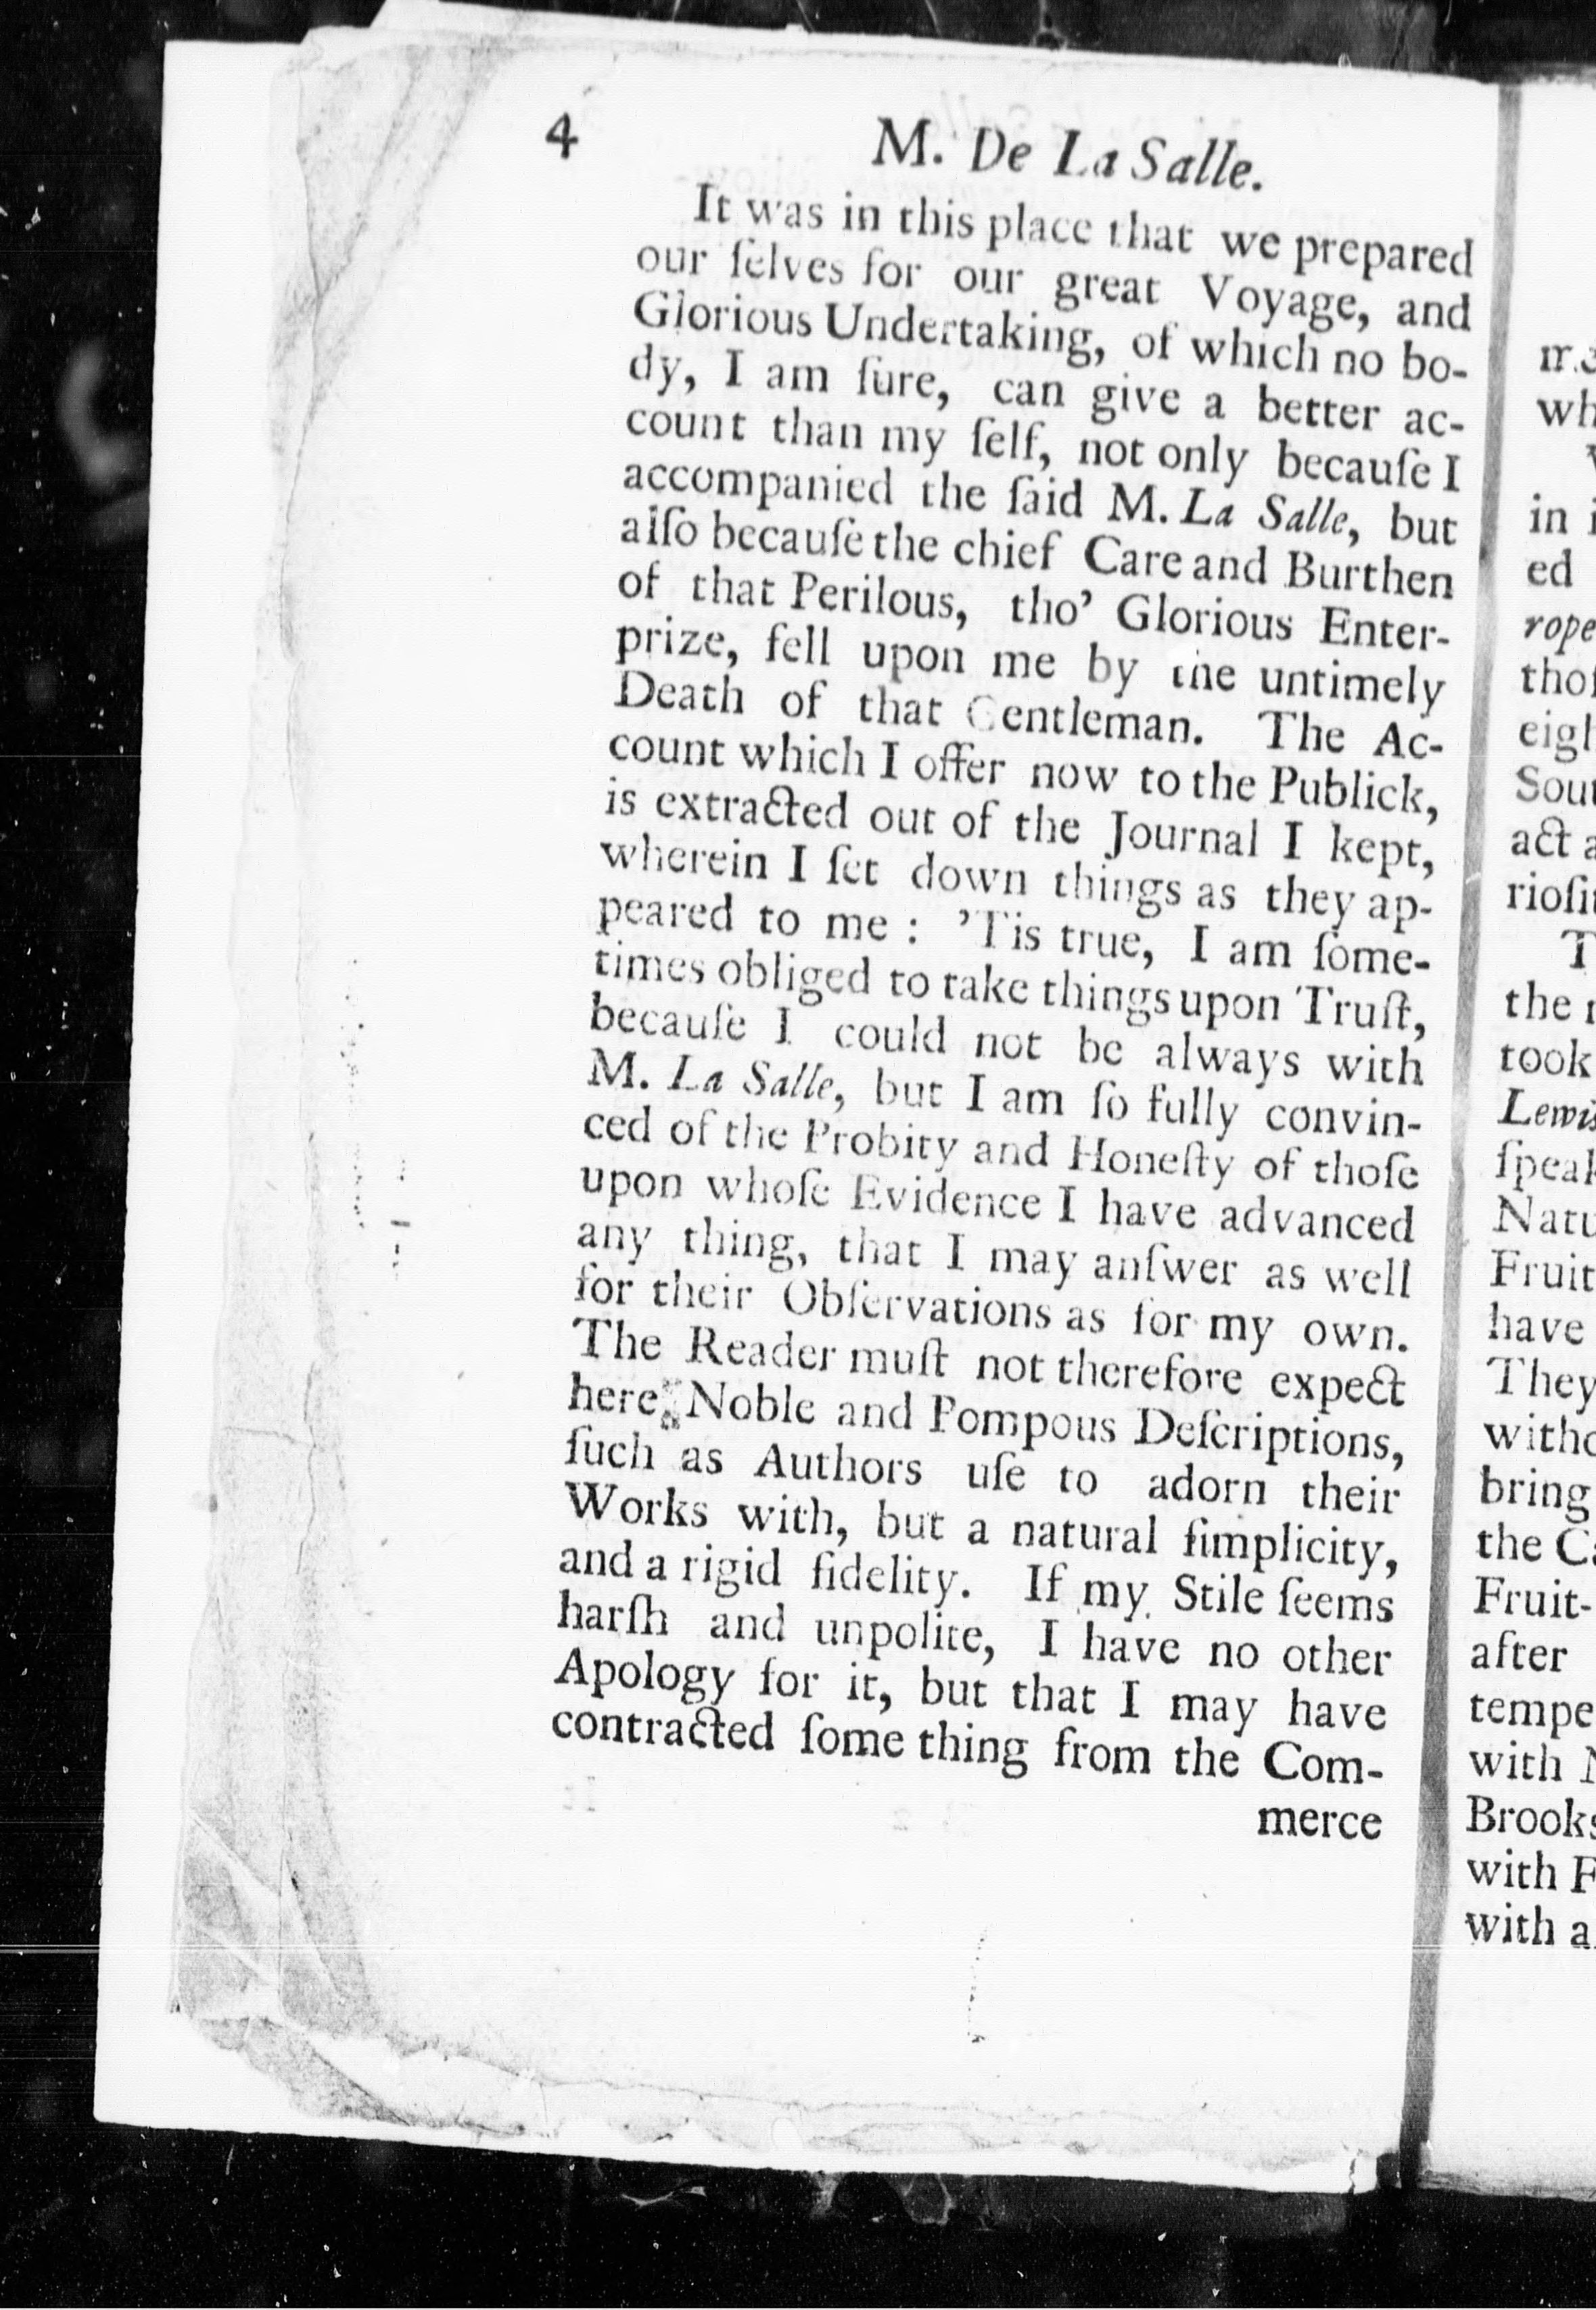 4
M. De La Salle.
It was in this place that we prepared
our ſelves for our great Voyage, and
Glorious Undertaking, of which no bo-
dy, I am ſure, can give a better ac-
count than my ſelf, not only becauſe I
accompanied the ſaid M. La Salle, but
alſo becauſe the chief Care and Burthen
of that Perilous, tho' Glorious Enter-
prize, fell upon me by the untimely
Death of that Gentleman. The Ac-
count which I offer now to the Publick,
is extracted out of the Journal I kept,
wherein I ſet down things as they ap-
peared to me : 'Tis true, I am ſome-
times obliged to take things upon Truſt,
becauſe I could not be always with
M. La Salle, but I am ſo fully convin-
ced of the Probity and Honeſty of thoſe
upon whoſe Evidence I have advanced
any thing, that I may anſwer as well
for their Obſervations as for my own.
The Reader muſt not therefore expect
here Noble and Pompous Deſcriptions,
ſuch as Authors uſe to adorn their
Works with, but a natural ſimplicity,
and a rigid fidelity. If my Stile ſeems
harſh and unpolite, I have no other
Apology for it, but that I may have
contracted ſome thing from the Com-
merce
wh
in i
ed
rope
thoſ
eigh
Sout
act a
rioſit
T
the
took
Lewis
ſpeak
Natu
Fruit
have
They
witho
bring
the Ca
Fruit-
after
tempe
with
Brooks
with F
with a